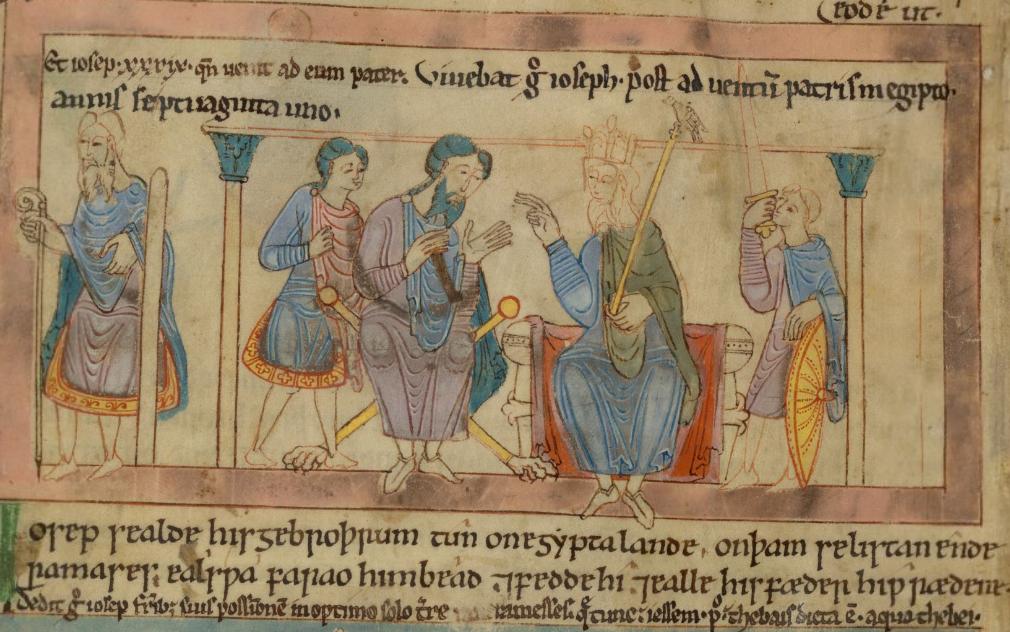 Crodē ut.
Et iosep xxxix. qn̄ uenit ad eum pater. Viuebat g̊ ioseph. post ad uentū patris in egipto.
annis septuaginta uno.
osep sealde his gebroþrum tún on egypta lande, on þam selistan ende
ramases. ealspa farao him bead ⁊ fedde hi ⁊ ealle his fæder hiprædene.
Dedit g̊ iosep fr̄ib; suis possionē in optimo solo t̄re ramesses. q̊ tunc iessem. p̊ thebais dicta ē. aqua thebei.